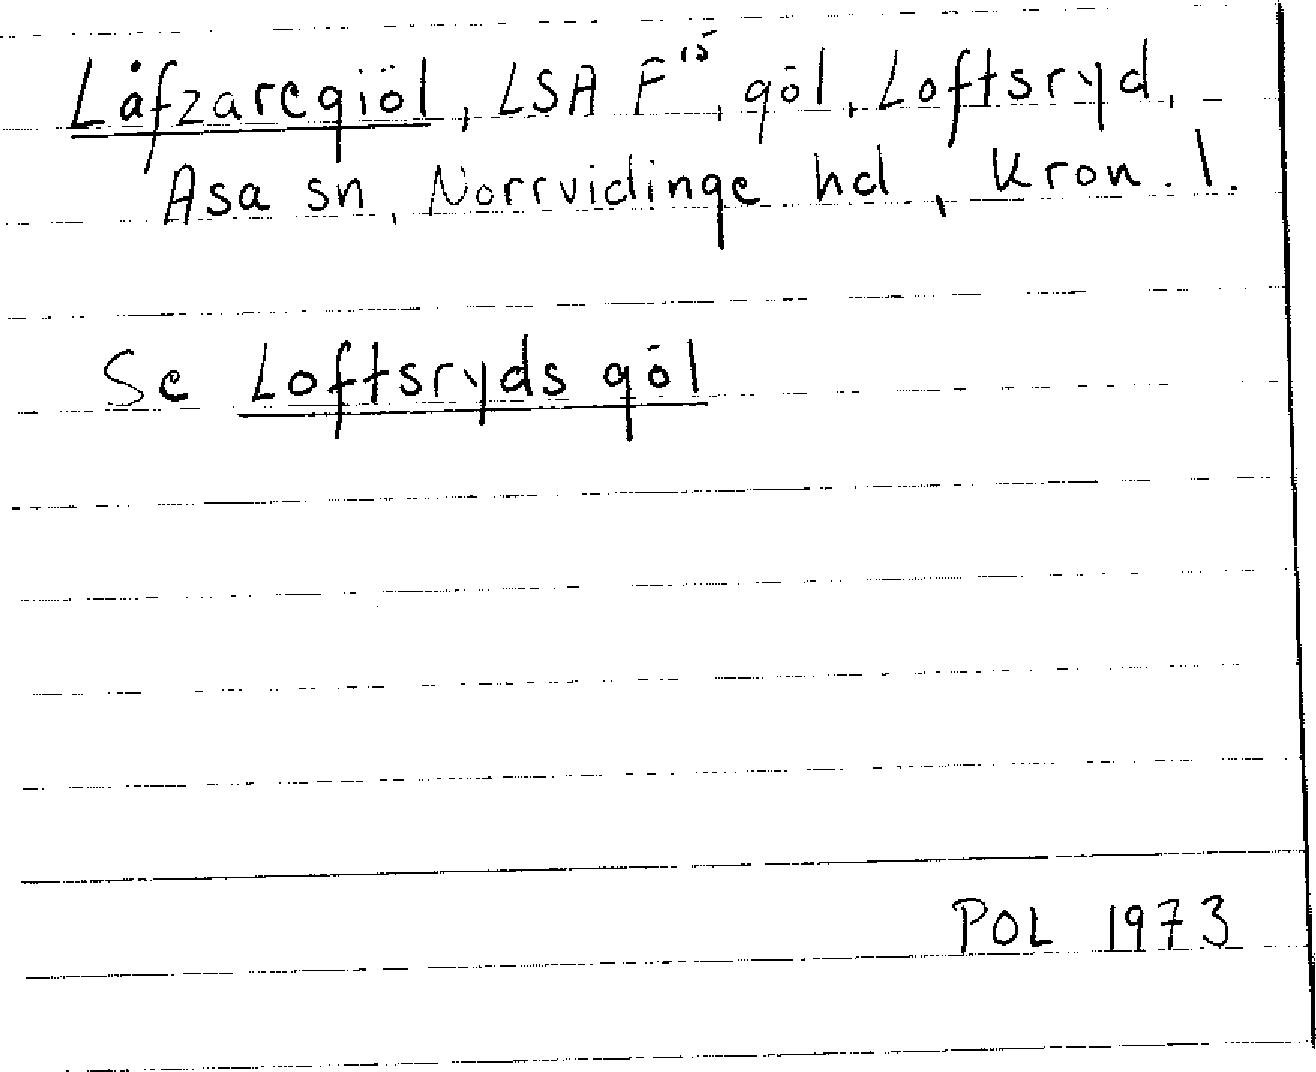 Låfzaregiöl, LSA F¹⁵, göl, Loftsryd,
Asa sn, Norrvidinge hd, Kron. l.
Se Loftsryds göl
POL 1973